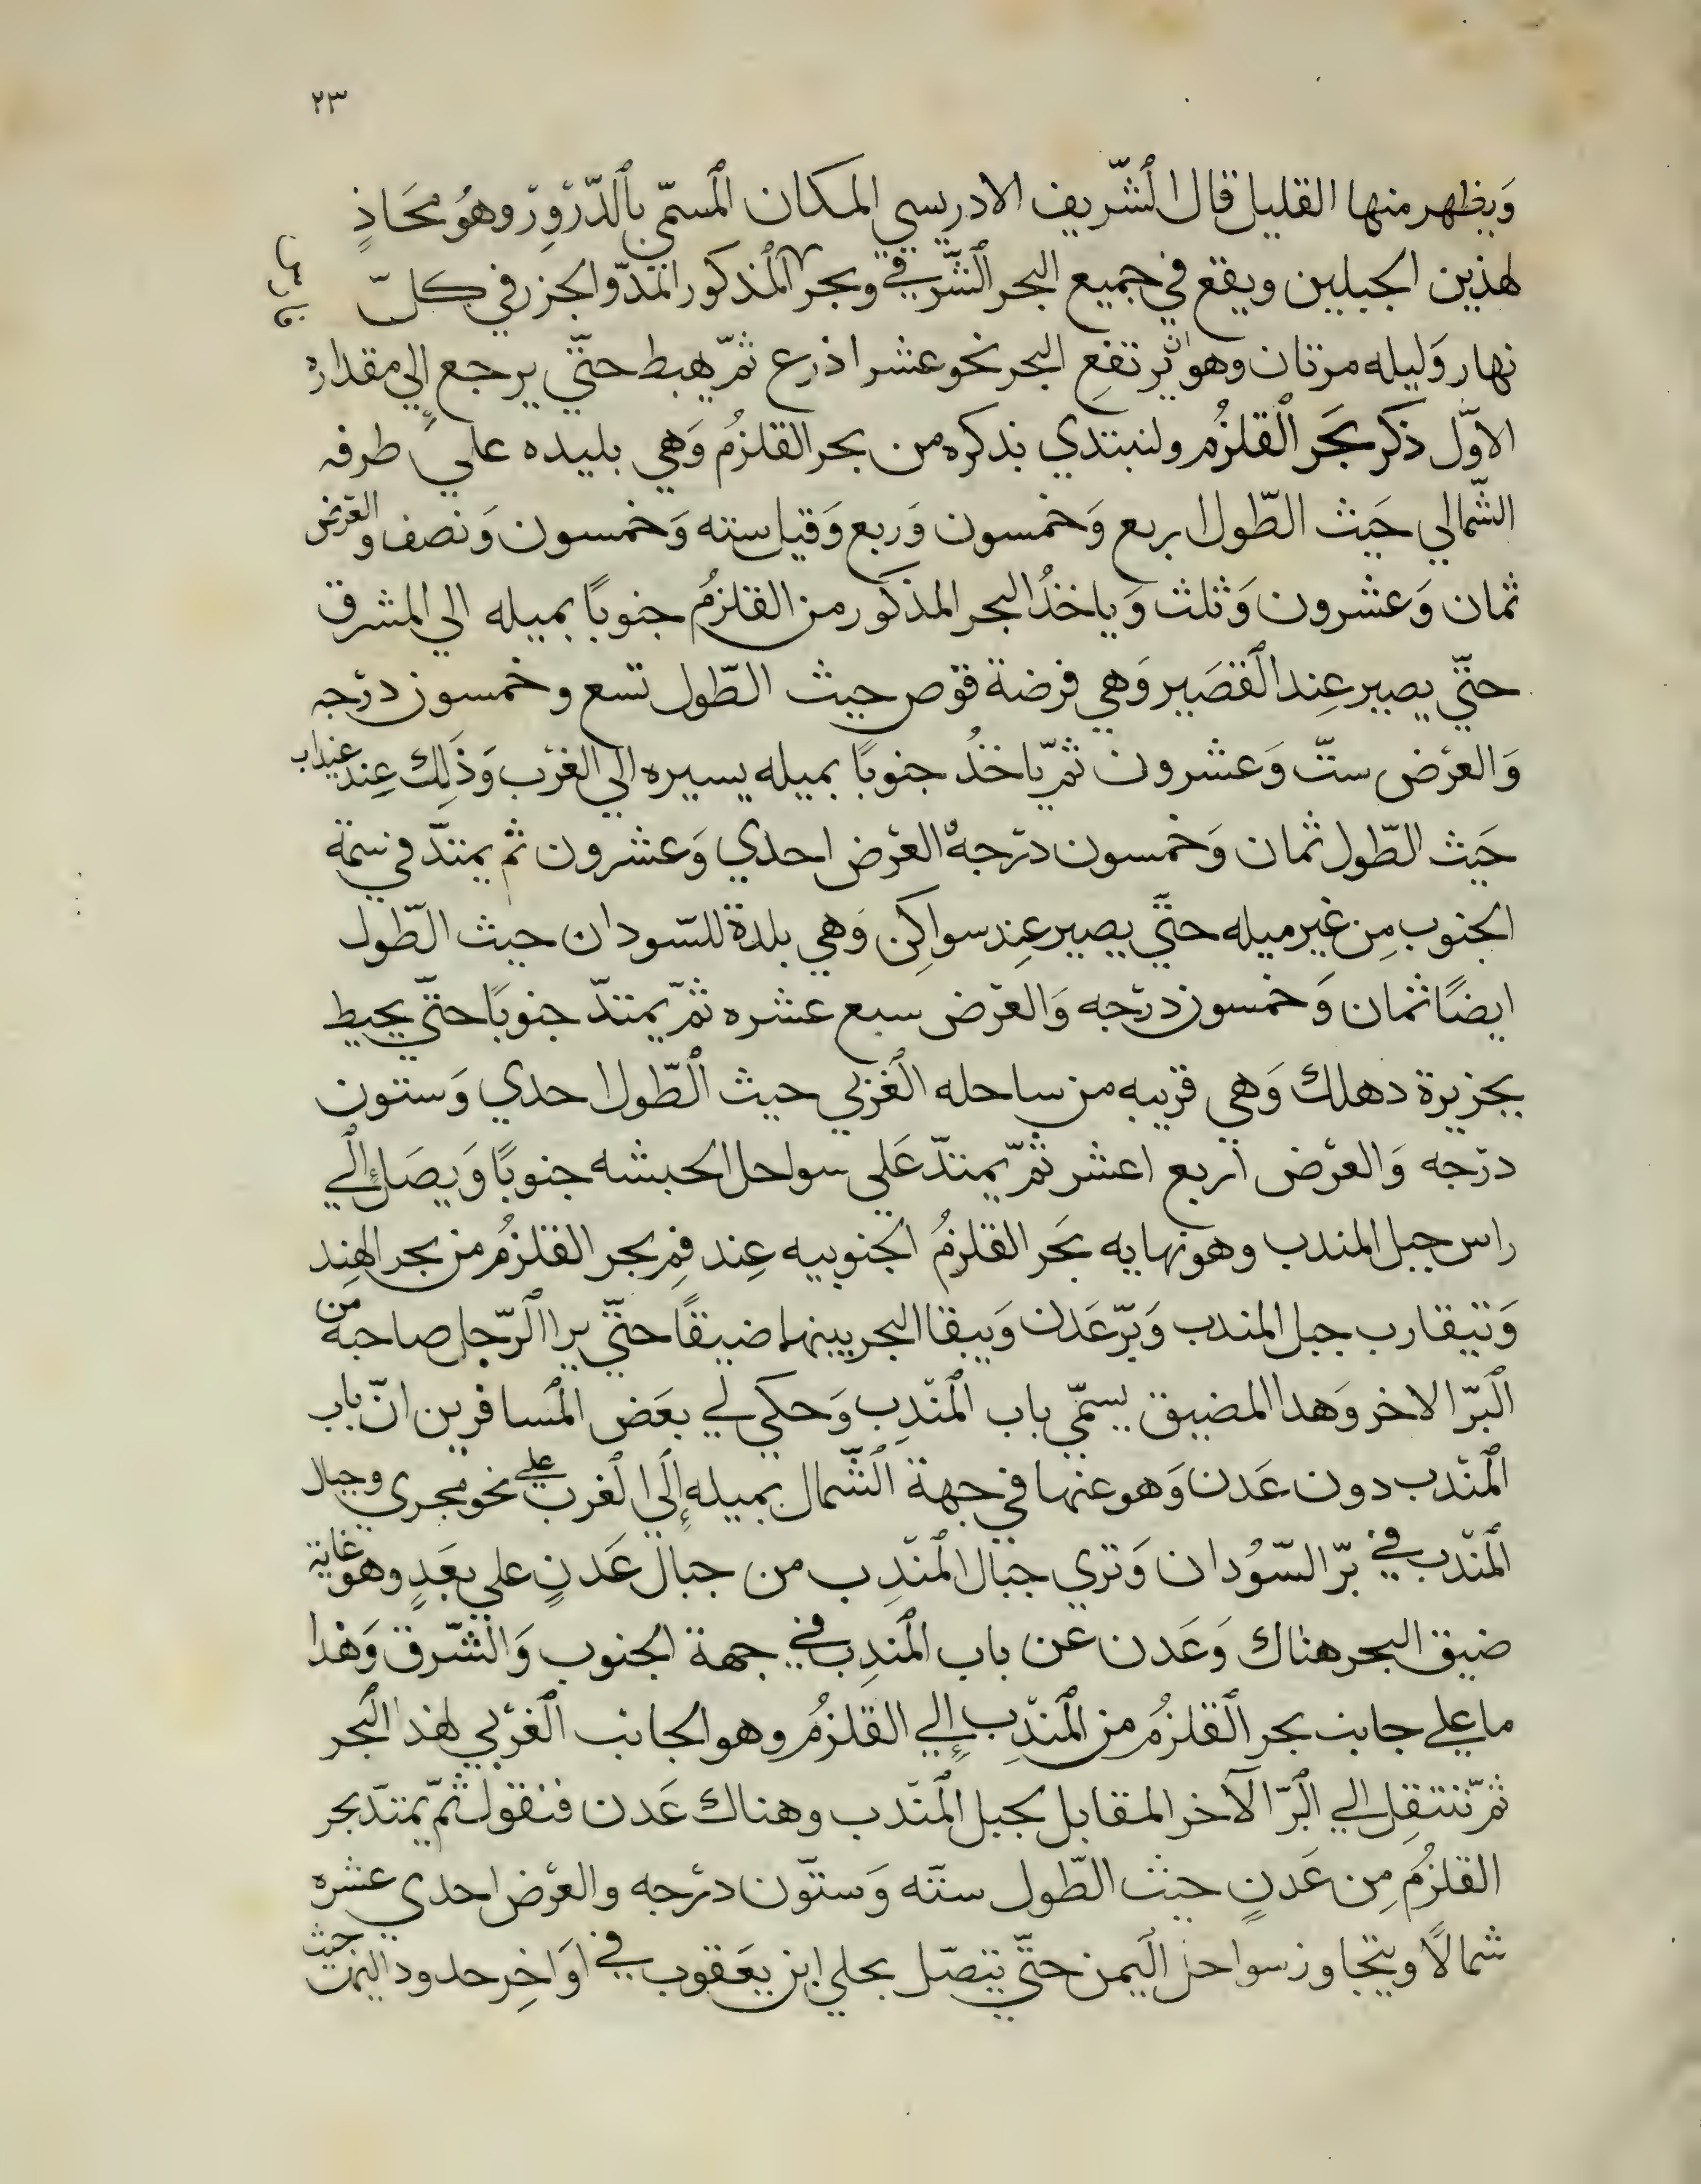 ٢٣
وَيظهر منها القليل قال الشّريف الادريسي المكان المُسمّي بالدّرْوِرْ وهوُ محَاذٍ
لهذين الجبلين ويقع في جميع البحر الشّرقي وبحر المذكور المدّ والجزر في كلّ
نهار وَليله مرتان وهو ان يرتفع البحر نحو عشر اذرع ثمّ يهبط حتّي يرجع إلي مقداره
الاوّل ذكر بحَر القلزُم ولنبتدي بذكره من بحر القلزُم وَهي بليده علي طرفه
الشّمالي حَيث الطّول اربع وَخمسون وَربع وَقيل سته وَخمسون وَنصف والعرْض
ثمان وَعشرون وَثلث وَياخذُ البحر المذكور من القلزمُ جنوبًا بميله الي المشرق
حتّي يصير عِند القصَير وَهي فرضة قوص حيث الطّول تسع وخمسون درْجه
وَالعرْض ستّ وَعشرون ثمّ ياخذُ جنوبًا بميله يسيره الي الغرْب وَذَلِك عِند عيذاب
حَيث الطّول ثمان وَخمسون درْجهْ العرْض احدي وَعشرون ثم يمتدّ في سمة
الجنوب مِن غير ميله حتّي يصير عِند سواكِن وَهي بلدة للسّودان حيث الطّول
ايضًا ثمان وَخمسون درْجه وَالعرْض سبع عشره ثمّ يمتدّ جنوبَا حتّي يحيط
بجزيرة دهلك وَهي قريبه من ساحله الغرْبي حيث الطّول احدي وَستون
درْجه وَالعرْض أربع اعشر ثمّ يمتدّ عَلي سواحل الحبشه جنوبًا وَيصَل إلي
راس جبل المندب وهو نهايه بحَر القلزمُ الجنوبيه عِند فِم بحر القلزُم من بحر الهِند
وَتيقارب جبل المندب وَبرّ عَدن وَيبقا البحر بينهما ضيقًا حتّي يرا الرّجل صاحبه من
البَرّ الاخر وَهدا المضيق يسمّي باب المنْدِب وَحكي لي بعَض المُسافرين انّ باب
المنْدب دون عَدن وَهو عنها في جهة الشّمال بميله إلَي الغرب علي نحو مجري وجبال
المنْدب في برّ السّوُدان وَتري جبال المنْدِب من جبال عَدنٍ علي بعَدٍ وهو غاية
ضيق البحر هناك وَعَدن عن باب المندِب في جهة الجنوب وَالشّرق وَهٰذا
ما علي جانب بحر القلزمُ من المنْدِب إلي القلزمُ وهو الجانب الغرْبي لهذا البحر
ثمّ ننتقِل الي البرّ الآخر المقابل لجبل المنْدب وهناك عَدن فنقول ثمّ يمتدّ بحر
القلزمَُ مِن عَدنٍ حيث الطّول ستّه وَستّون درْجه والعرْض احدي عشره
شمالًا ويتجاوز سواحل اليمن حتّي يتصّل بحلي ابن يعَقوب في اوَاخِر حدود اليمن حيث